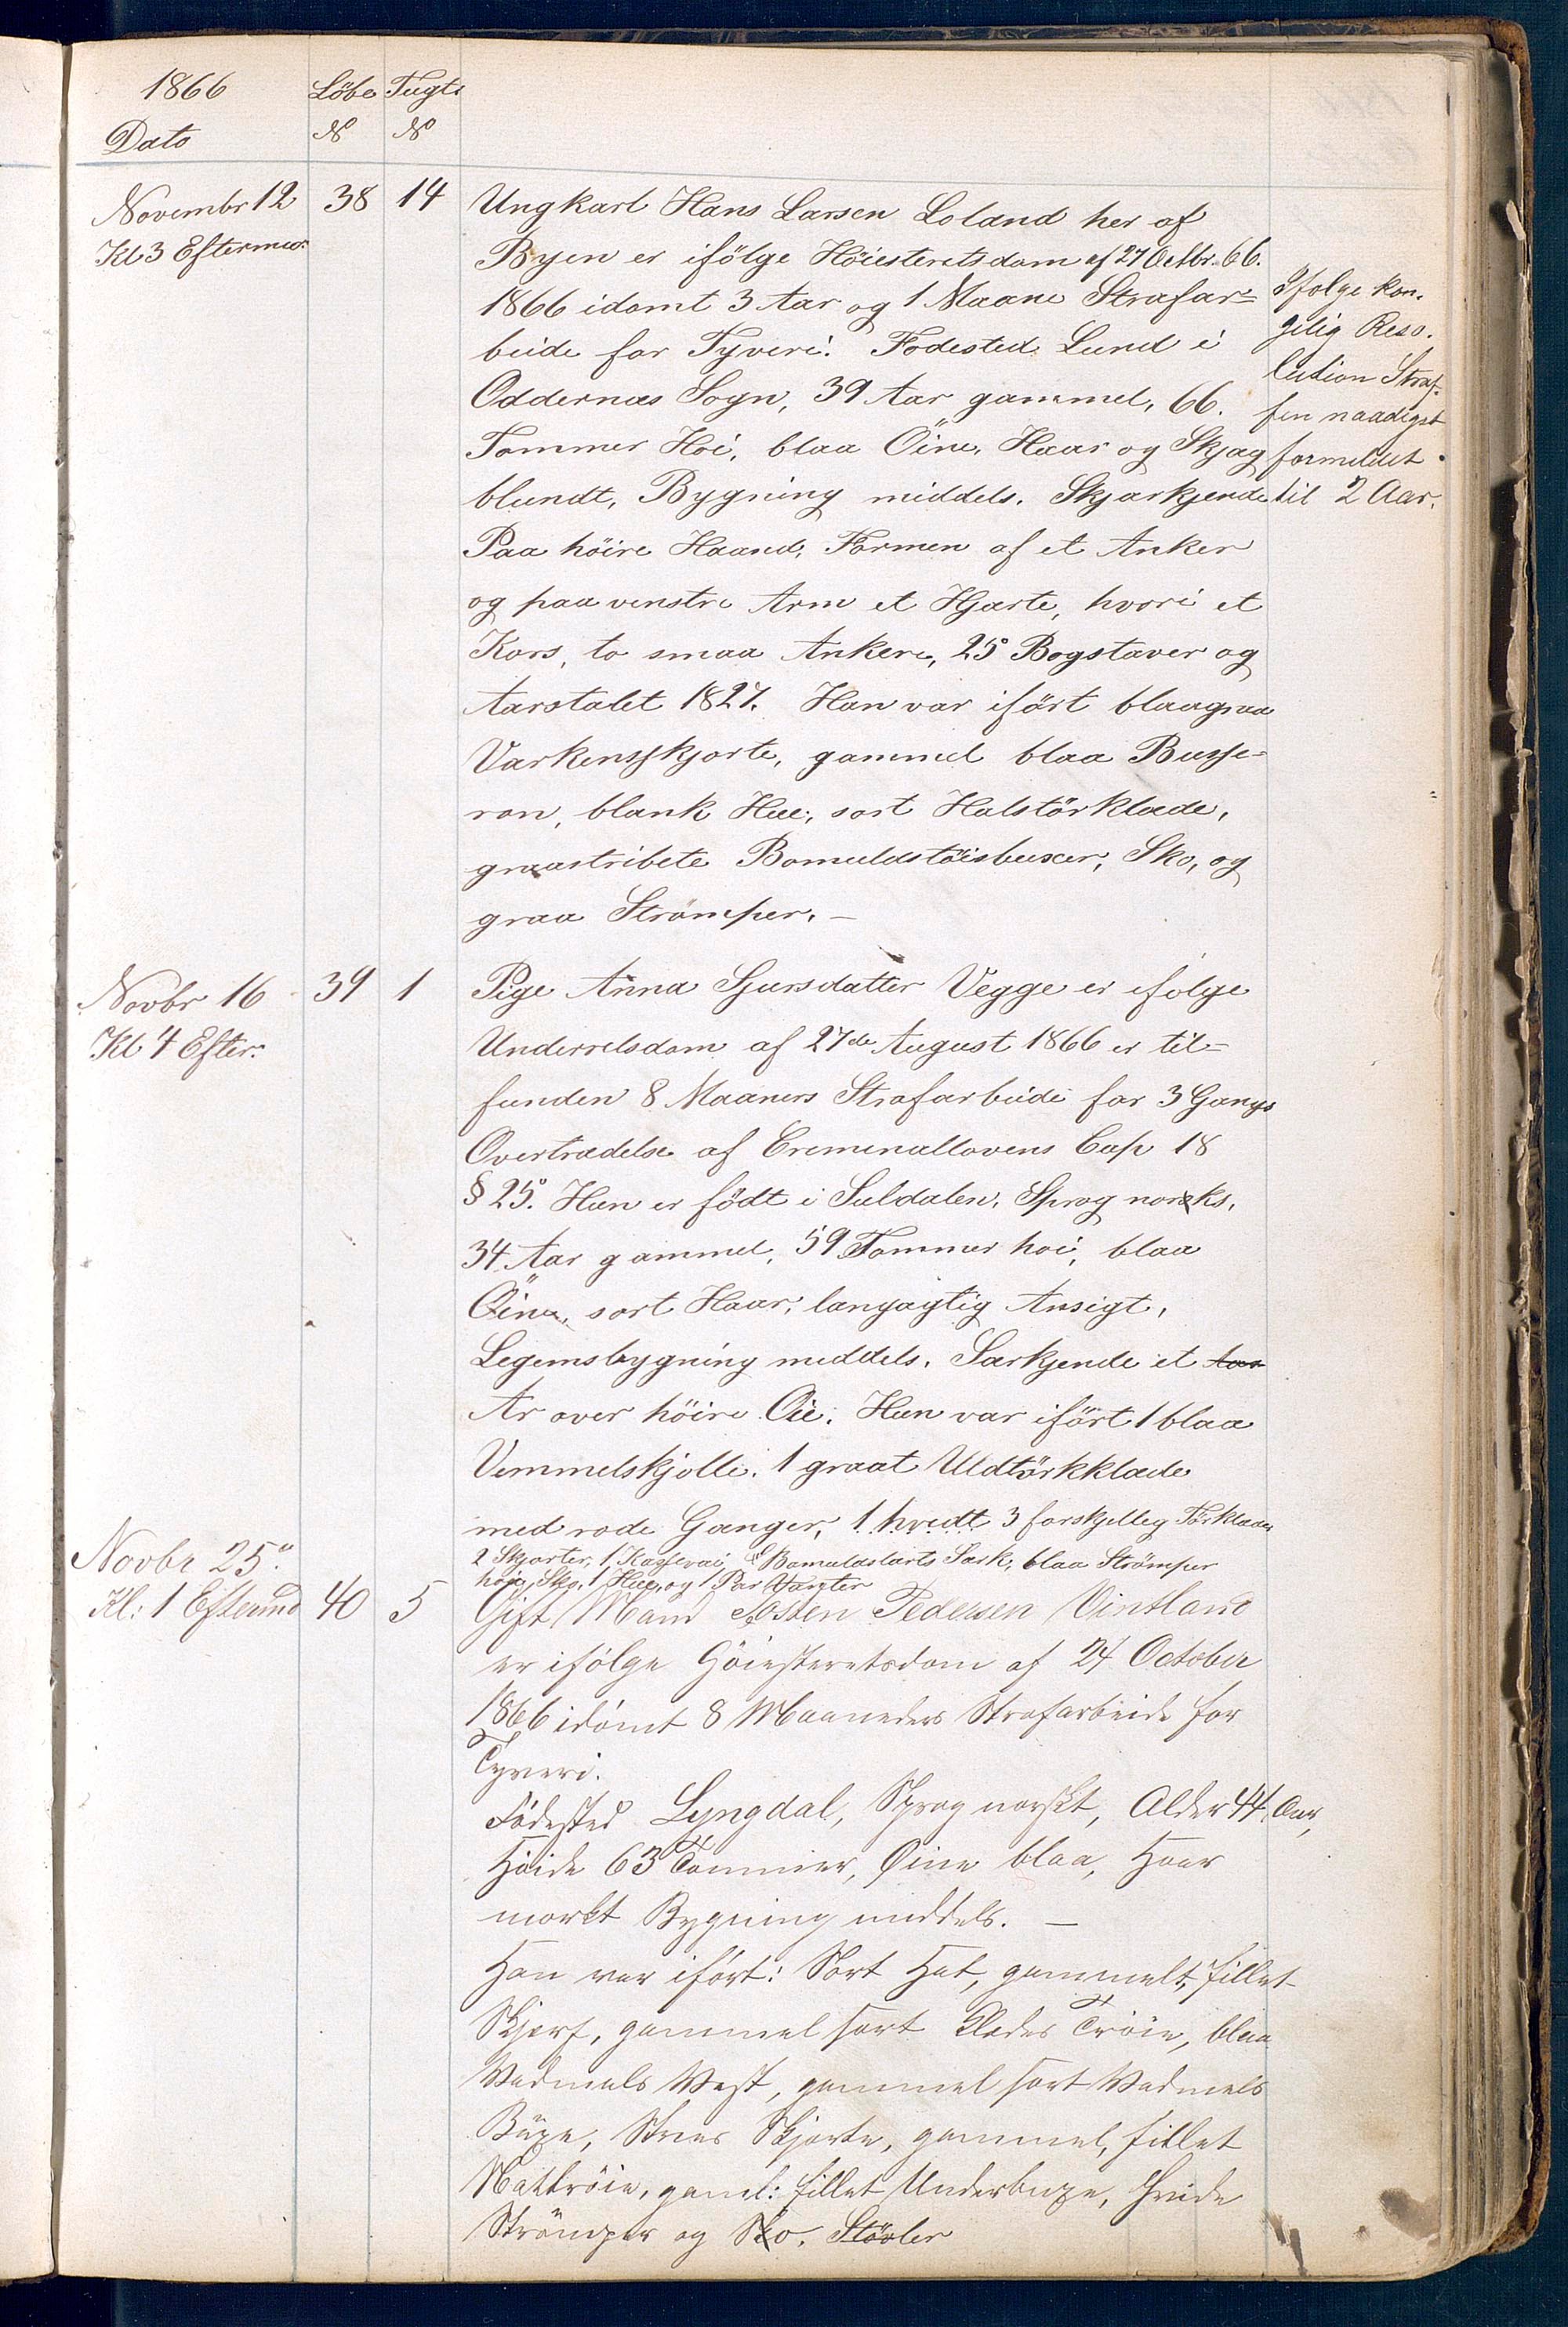 1866
Löbe Tugts
Dato
N N
Novembr 12 38 14 Ungkarl Hans Larsen Loland her af
Kl 3 Eftermid: Byen er ifölge Höiesteretsdom af 27 Octbr. 66.
1866 idomt 3 Aar og 1 Maane Strafar=
beide for Tyveri. Fodested Lund i
Oddernæs Sogn, 39 Aar gammel, 66.
Tommer Hoi, blaa Öine, Haar og Skjæg
blondt, Bygning middels. Skjærkjende
Paa höire Haand, Formen af et Anker
og paa venstre Arm et Hjærte, hvori et
Kors, to smaa Ankere, 25 Bogstaver og
Aarstalet 1827. Han var ifört blaagraa
Varkensskjorte, gammel blaa Busse=
ron, blank Hue, sort Halstörklæde,
graastribete Bomuldstöisbuxer, Sko, og
graa Strömper. —
Ifolge kon.
gelig Reso.
lution Straf=
fen naadigst
formildet
til 2 Aar.
Novbr 16 39 1 Pige Anna Sjursdatter Vegge er ifolge
Kl 4 Efter: Underretsdom af 27de August 1866 er til=
funden 8 Maaners Strafarbeide for 3 Gangs
Overtrædelse af Creminallovens Cap 18
§ 25. Hun er födt i Suldalen, Sprog norsks,
34 Aar gammel, 59 Tommer hoi, blaa
Öine, sort Haar, langagtig Ansigt,
Legemsbygning meddels. Særkjende et Aar
Ar over höire Öie. Hun var ifört 1 blaa
Vemmelskjolle. 1 graat Uldtörkklæde
med rode Ganger, 1 hvidt 3 forskjelleg Törklæder
2 Skjorter, 1 Bomuldslærts Særk, blaa Strömper
höie Sko, 1 Hue, og 1 Par Vanter
Novbr 25.
Kl: 1 Eftermid 40 5 Gift Mand Tosten Pedersen Vintland
er ifölge Höiesteretsdom af 24 October
1866 idömt 8 Maaneders Strafarbeide for
Tyveri.
Födested Lyngdal, Sprog norskt, Alder 44 Aar,
Höide 63 Tommer, Øine blaa, Haar
morkt Bygning middels. —
Han var ifört: Sort Hat, gammelt, fillet
Skjerf, gammel sort Klædes Tröie, blaa
Vadmels Vest, gammel sort Vadmels
Buxe, Stries Skjorte, gammel, fillet
Nattröie, gaml: fillet Underbuxe, hvide
Strömper og Sko. Stövler